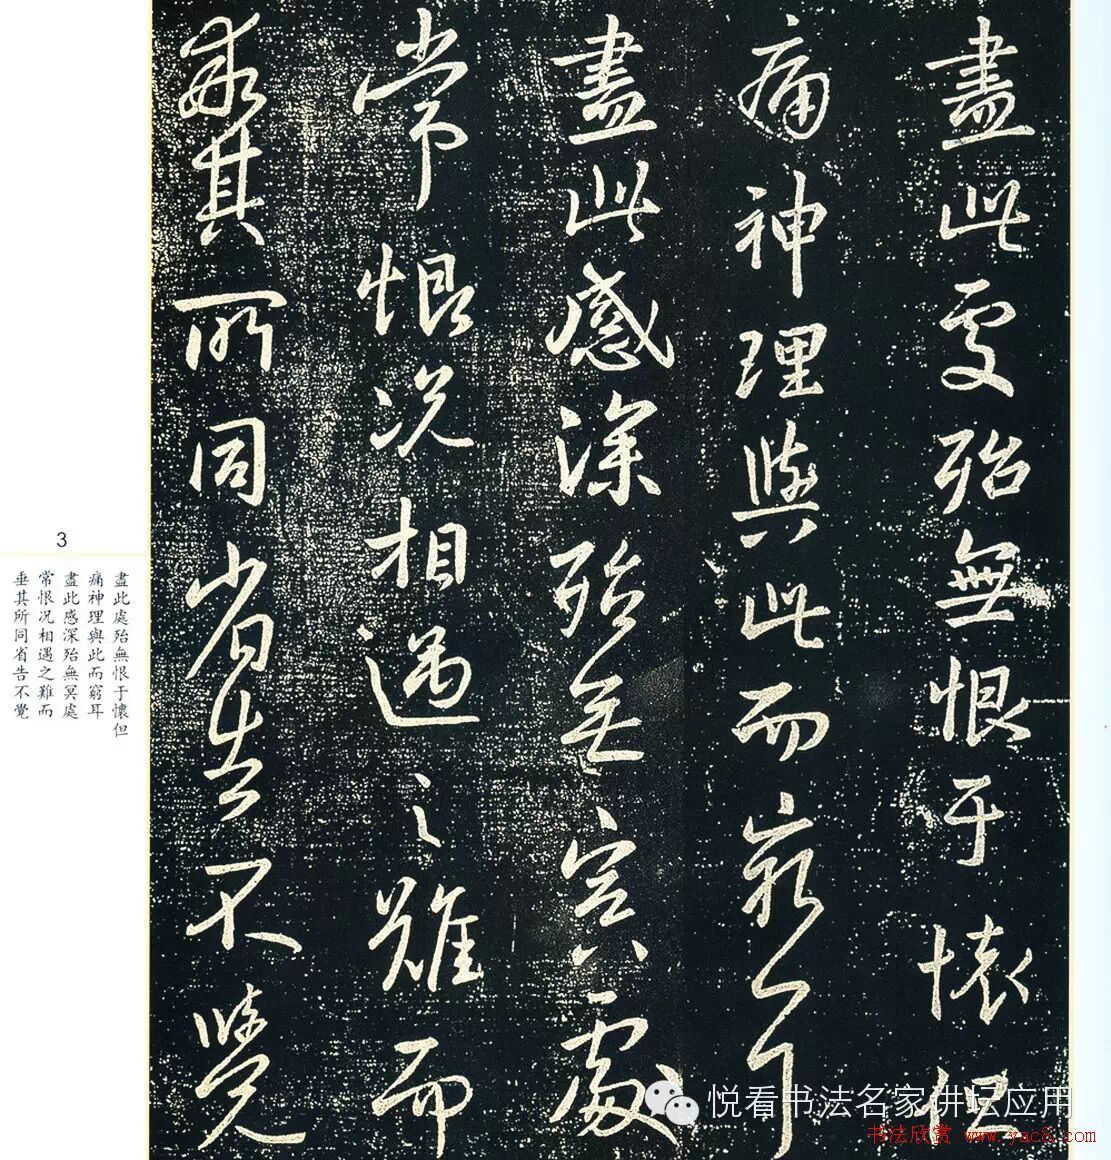 盡此處殆無恨于懷但
痛神理與此而窮耳
盡此感深殆無冥處
常恨况相遇之難而
垂其所同省告不覺
3
盡此處殆無恨于懷但
痛神理與此而窮耳
盡此感深殆無冥處
常恨况相遇之難而
垂其所同省告不覺
悦看书法名家讲坛应用
书法欣赏 www.yac8.com